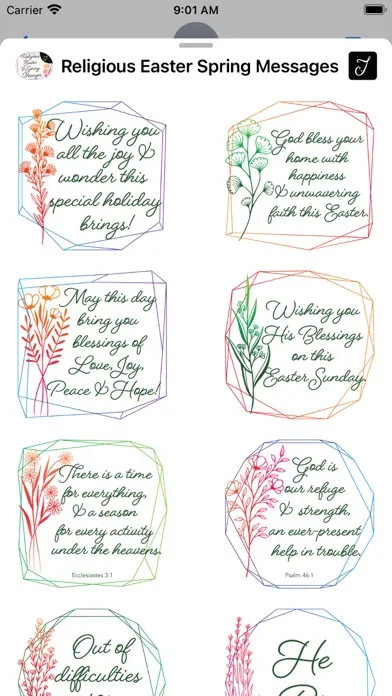 Carrier 9:01 AM
Religious Easter Spring Messages
Religious
Easter
Spring
Messages
Wishing you
all the joy &
wonder this
special holiday
brings!
God bless your
home with
happiness
& unwavering
faith this Easter.
May this day
bring you
blessings of
Love, Joy,
Peace & Hope!
Wishing you
His Blessings
on this
Easter Sunday.
There is a time
for everything,
& a season
for every activity
under the heavens.
Ecclesiastes 3:1
God is
our refuge
& strength,
an ever-present
help in trouble.
Psalm 46:1
Out of
difficulties
He